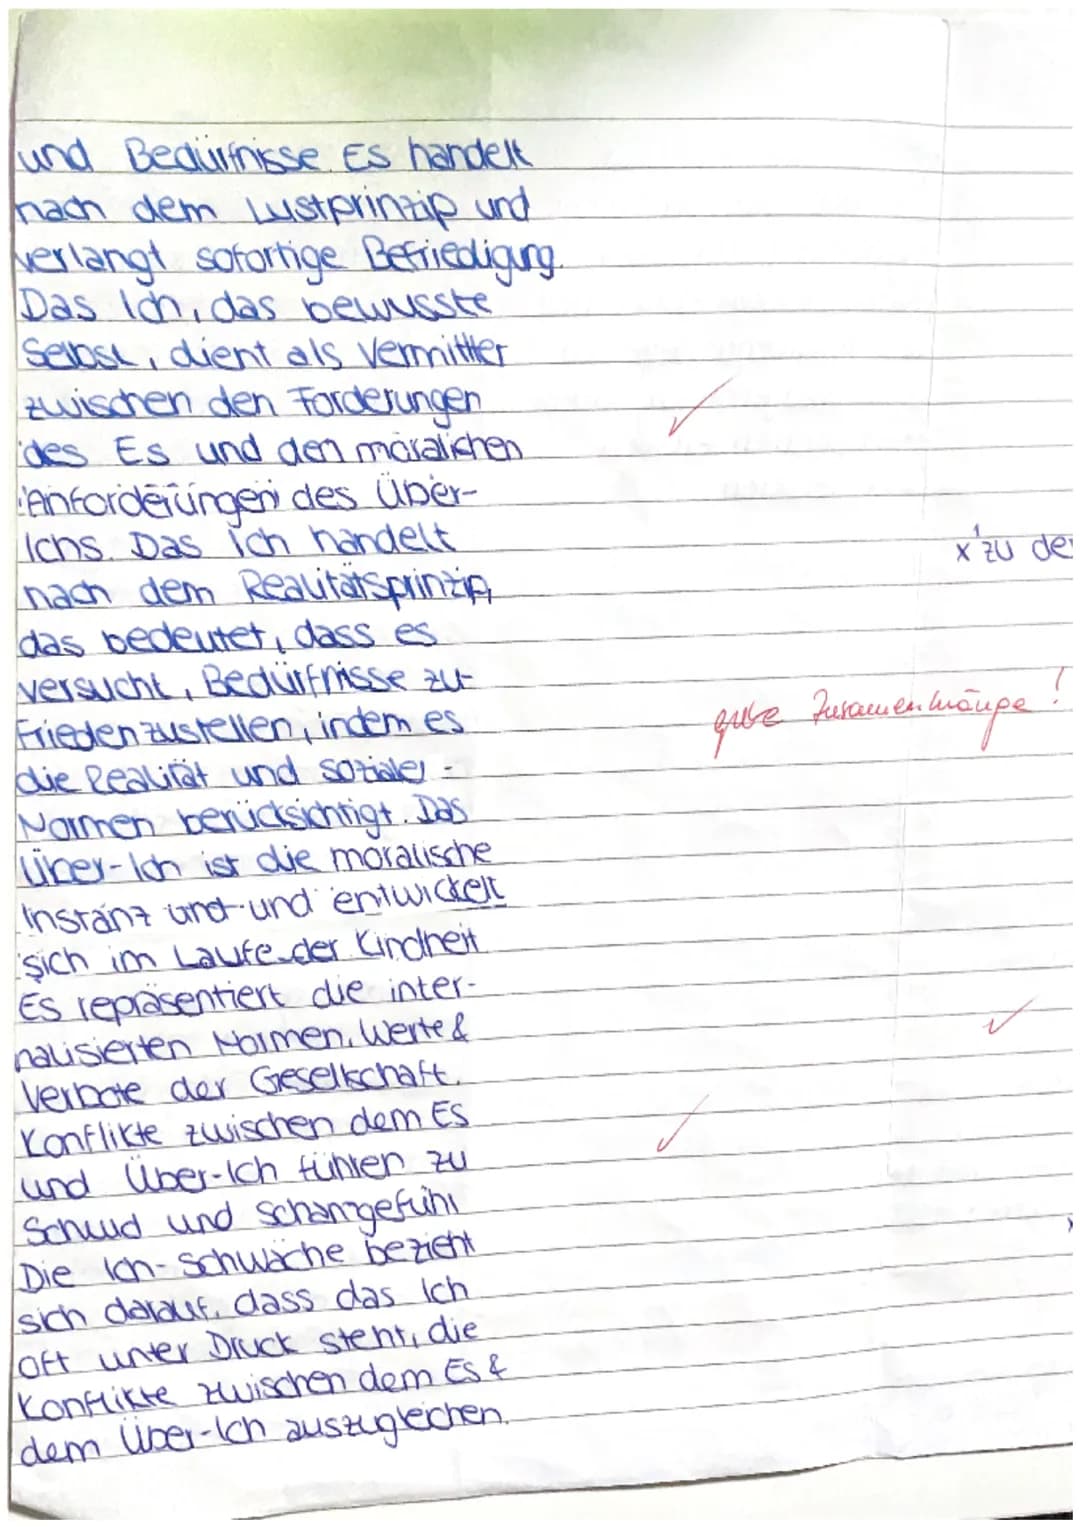 und Bedürfnisse. Es handelt
nach dem Lustprinzip und
verlangt sofortige Befriedigung.
Das Ich, das bewusste
Selbst, dient als Vermittler
zwischen den Forderungen
des Es und den moralichen
Anforderungen des Über-
Ichs. Das Ich handelt
x¹ zu de
nach dem Realitätsprinzip,
das bedeutet, dass es
versucht, Bedürfnisse zu-
frieden zustellen, indem es
gute Zusammenhänge!
die Realität und soziale
Normen berücksichtigt. Das
Über-Ich ist die moralische
Instanz und und entwickelt
sich im Laufe der Kindheit
Es repräsentiert die inter-
nalisierten Normen, Werte &
Verbote der Gesellschaft.
Konflikte zwischen dem Es
und Über-Ich führen zu
Schuld und Schamgefühl
Die Ich-Schwäche bezieht
sich darauf, dass das Ich
oft unter Druck steht, die
Konflikte zwischen dem Es &
dem Über-Ich auszugleichen.